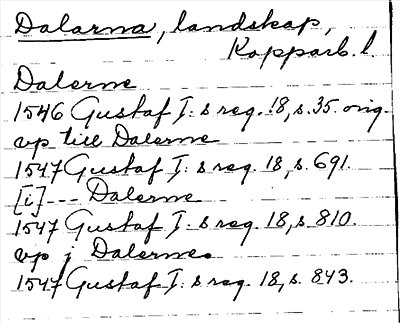 Dalarna, landskap,
Kopparb. l.
Dalerne
1546 Gustaf I: s reg. 18, s. 35. orig.
vp till Dalerne
1547 Gustaf I: s reg. 18, s. 691.
[i] --- Dalerne
1547 Gustaf I: s reg. 18, s. 810.
vp j Dalernes
1547 Gustaf I: s reg. 18, s. 843.